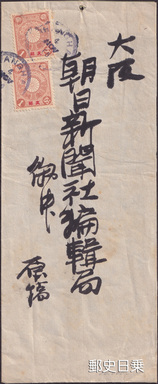 大阪
朝日新聞社編輯局
御中
原稿
郵史日乗